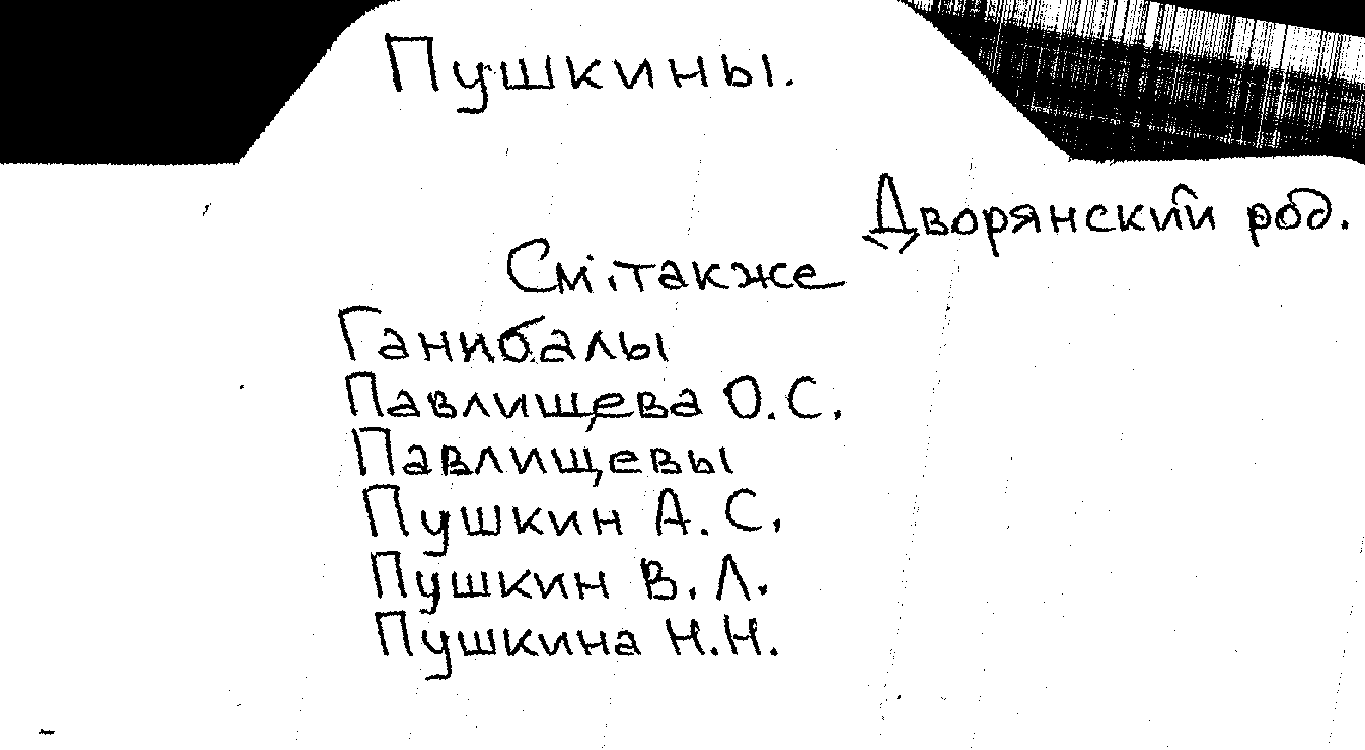 Пушкины.
Дворянский род.
См. также
Ганибалы
Павлищева О.С.
Павлищевы
Пушкин А.С.
Пушкин В.Л.
Пушкина Н.Н.